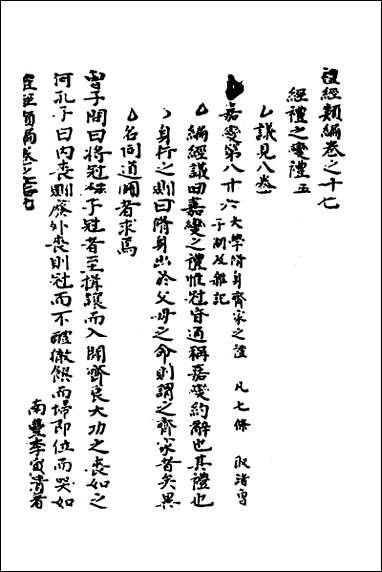 禮經類編卷之十七
經禮之變禮五
議見八卷
嘉變第八十六 大學脩身齊家之證 凡七條 取諸曾
子問及雜記
編經議曰嘉變之禮惟冠昏通稱嘉變約辭也其禮也
身行之則曰脩身出於父母之命則謂之齊家者矣異
名同道閱者求焉
曾子問曰將冠子冠者至揖讓而入聞齊衰大功之喪如之
何孔子曰內喪則廢外喪則冠而不醴徹饌而埽即位而哭如
南豐李寅清著
禮經類編卷之